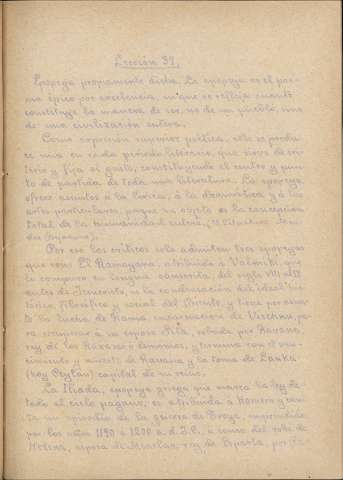 Lección 37.
Epopeya propiamente dicha. La epopeya es el poe-
ma épico por excelencia, en que se refleja cuanto
constituye la manera de ser, no de un pueblo, sino
de una civilización entera.
Como expresión superior poética, sólo se produ-
ce una en cada período literario, que sirve de cri-
terio y fija el gusto, constituyendo el centro y pun-
to de partida de toda una literatura. La epopeya
ofrece asuntos a la lírica, á la dramática y á las
artes particulares, porque su objeto es la concepción
total de la humanidad
Por eso los críticos solo admiten tres epopeyas
que son: El Ramayana, atribuido á Valmiki, que
lo compuso en lengua sanscrita, del siglo
antes de Jesucristo, es la condensación del ideal his-
tórico, filosófico y social del Oriente, y tiene por asun-
to la lucha de Rama, encarnación de Vischnu, pa-
ra recuperar a su esposa Sita, robada por Ravana,
rey de los Raxasas ó demonios, y termina con el ven-
cimiento y muerte de Ravana y la toma de Lanka
(hoy Ceylán) capital de su reino.
La Iliada, epopeya griega que marca la ley de
todo el ciclo pagano, es atribuida á Homero y can-
ta un episodio de la guerra de Troya, emprendida
por los años 1190 ó 1200 a. d. J.C. á causa del robo de
Helena, esposa de Menelao, rey de Esparta, por